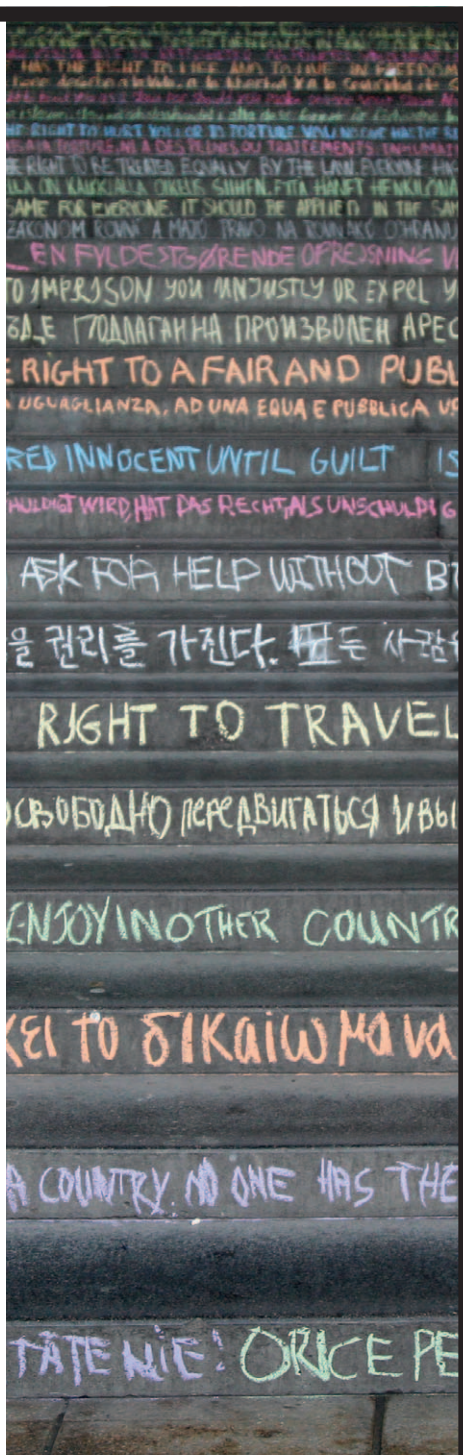 HAS THE RIGHT TO LIFE AND TO LIVE IN FREEDOM
THE RIGHT TO HURT YOU OR TO TORTURE YOU
TORTURE, NI A DES PEINES OU TRAITEMENTS INHUMAT
RIGHT TO BE TREATED EQUALLY BY THE LAW EVERYONE HA
ON KAIKKIALLA OIKEUS SIIHEN, ETTÄ HÄNET
AME FOR EVERYONE. IT SHOULD BE APPLIED IN THE SAM
ZAKONOM ROVNÍ A MAJÚ PRÁVO NA ROVNAKÚ OCHRANU
EN FYLDESTGØRENDE OPREJSNING V
TO IMPRISON YOU UNJUSTLY OR EXPEL Y
БДЕ ПОДЛАГАН НА ПРОИЗВОЛЕН АРЕС
E RIGHT TO A FAIR AND PUBL
UGUAGLIANZA, AD UNA EQUA E PUBBLICA
RED INNOCENT UNTIL GUILT IS
HULDIGT WIRD, HAT DAS RECHT, ALS UNSCHULDIG
ASK FOR HELP WITHOUT
을 권리를 가진다. 모든 사람은
RIGHT TO TRAVEL
СВОБОДНО ПЕРЕДВИГАТЬСЯ И ВЫ
ENJOY IN OTHER COUNTR
ΧΕΙ ΤΟ δΙΚαίωμα να
A COUNTRY. NO ONE HAS THE
TATE NIE! ORICE PE